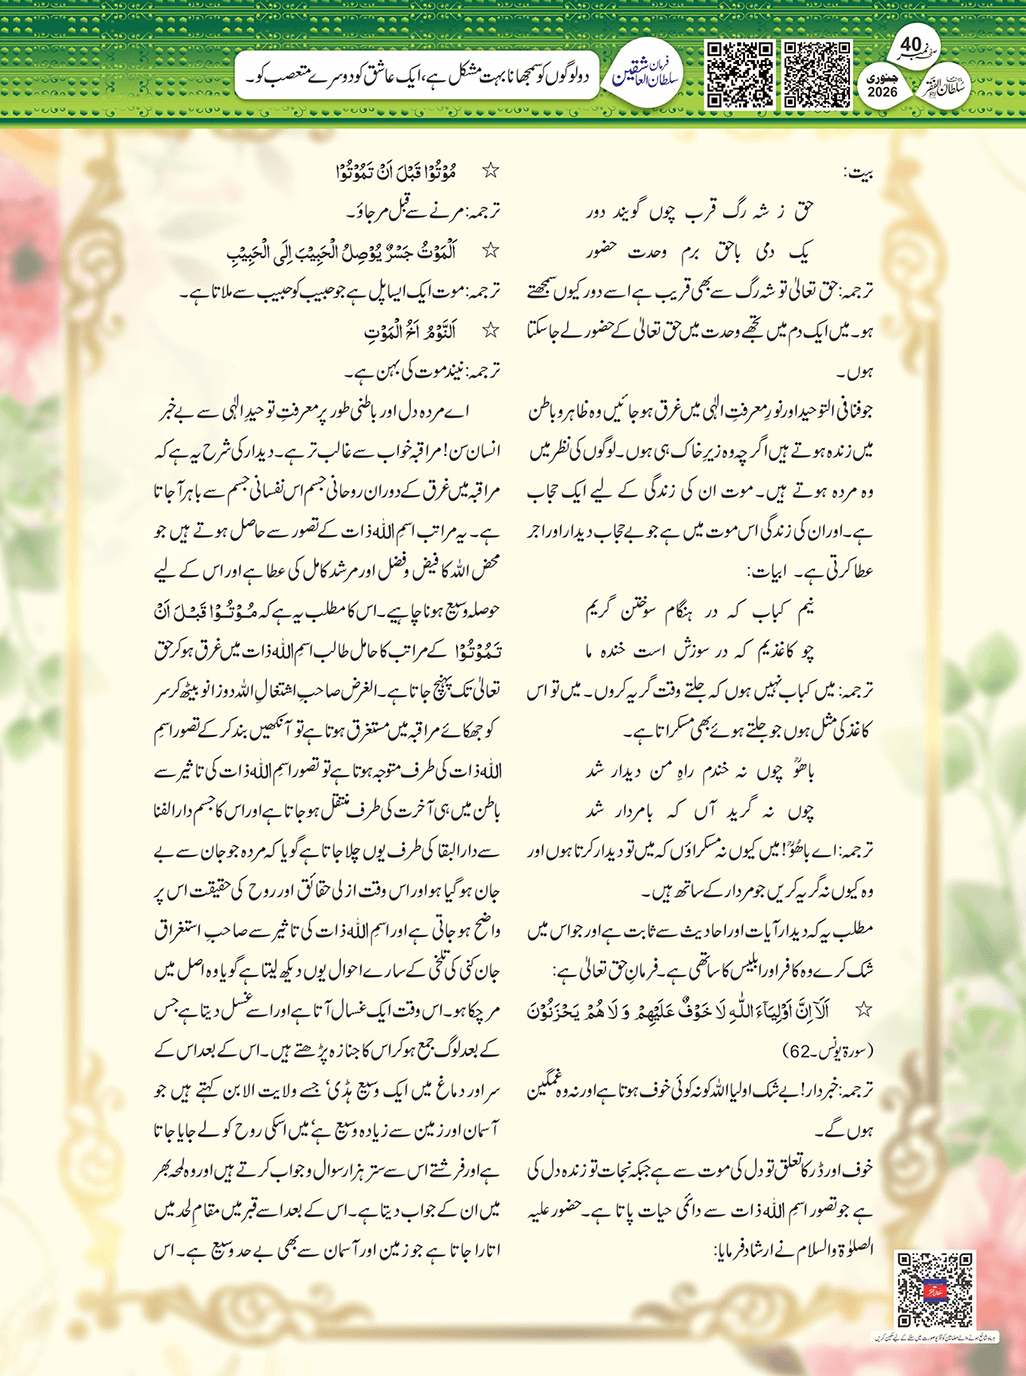 صفحہ نمبر 40
جنوری
2026
سلطان الفقر
فرمان
سلطان العاشقین
دو لوگوں کو سمجھانا بہت مشکل ہے، ایک عاشق کو دوسرے متعصب کو۔
بیت:
حق ز شہ رگ قرب چوں گویند دور
یک دمی باحق برم وحدت حضور
ترجمہ: حق تعالیٰ تو شہ رگ سے بھی قریب ہے اسے دور کیوں سمجھتے
ہو۔ میں ایک دم میں تجھے وحدت میں حق تعالیٰ کے حضور لے جا سکتا
ہوں۔
جو فنا فی التوحید اور نورِ معرفتِ الٰہی میں غرق ہو جائیں وہ ظاہر و باطن
میں زندہ ہوتے ہیں اگرچہ وہ زیرِ خاک ہی ہوں۔ لوگوں کی نظر میں
وہ مردہ ہوتے ہیں۔ موت ان کی زندگی کے لیے ایک حجاب
ہے۔ اور ان کی زندگی اس موت میں ہے جو بے حجاب دیدار اور اجر
عطا کرتی ہے۔ ابیات:
نیم کباب کہ در ہنگام سوختن گریم
چو کاغذیم کہ در سوزش است خندہ ما
ترجمہ: میں کباب نہیں ہوں کہ جلتے وقت گریہ کروں۔ میں تو اس
کاغذ کی مثل ہوں جو جلتے ہوئے بھی مسکراتا ہے۔
باھُوؒ چوں نہ خندم راہِ من دیدار شد
چوں نہ گرید آں کہ بامردار شد
ترجمہ: اے باھُوؒ! میں کیوں نہ مسکراؤں کہ میں تو دیدار کرتا ہوں اور
وہ کیوں نہ گریہ کریں جو مردار کے ساتھ ہیں۔
مطلب یہ کہ دیدار آیات اور احادیث سے ثابت ہے اور جو اس میں
شک کرے وہ کافر اور ابلیس کا ساتھی ہے۔ فرمانِ حق تعالیٰ ہے:
☆ اَلَآ اِنَّ اَوْلِیَآءَ اللّٰہِ لَا خَوْفٌ عَلَیْھِمْ وَ لَا ھُمْ یَحْزَنُوْنَ
(سورۃ یونس۔62)
ترجمہ: خبردار! بے شک اولیا اللہ کو نہ کوئی خوف ہوتا ہے اور نہ وہ غمگین
ہوں گے۔
خوف اور ڈر کا تعلق تو دل کی موت سے ہے جبکہ نجات تو زندہ دل کی
ہے جو تصور اسمِ اللہ ذات سے دائمی حیات پاتا ہے۔ حضور علیہ
الصلوٰۃ والسلام نے ارشاد فرمایا:
☆ مُوْتُوْا قَبْلَ اَنْ تَمُوْتُوْا
ترجمہ: مرنے سے قبل مر جاؤ۔
☆ اَلْمَوْتُ جَسْرٌ یُوْصِلُ الْحَبِیْبَ اِلَی الْحَبِیْبِ
ترجمہ: موت ایک ایسا پل ہے جو حبیب کو حبیب سے ملاتا ہے۔
☆ اَلنَّوْمُ اَخُ الْمَوْتِ
ترجمہ: نیند موت کی بہن ہے۔
اے مردہ دل اور باطنی طور پر معرفتِ توحیدِ الٰہی سے بے خبر
انسان سن! مراقبہ خواب سے غالب تر ہے۔ دیدار کی شرح یہ ہے کہ
مراقبہ میں غرق کے دوران روحانی جسم اس نفسانی جسم سے باہر آ جاتا
ہے۔ یہ مراتب اسمِ اللہ ذات کے تصور سے حاصل ہوتے ہیں جو
محض اللہ کا فیض و فضل اور مرشد کامل کی عطا ہے اور اس کے لیے
حوصلہ وسیع ہونا چاہیے۔ اس کا مطلب یہ ہے کہ مُوْتُوْا قَبْلَ اَنْ
تَمُوْتُوْا کے مراتب کا حامل طالب اسم اللہ ذات میں غرق ہو کر حق
تعالیٰ تک پہنچ جاتا ہے۔ الغرض صاحبِ اشتغال اللہ دوزانو بیٹھ کر سر
کو جھکائے مراقبہ میں مستغرق ہوتا ہے تو آنکھیں بند کر کے تصور اسمِ
اللہ ذات کی طرف متوجہ ہوتا ہے تو تصور اسمِ اللہ ذات کی تاثیر سے
باطن میں ہی آخرت کی طرف منتقل ہو جاتا ہے اور اس کا جسم دار الفنا
سے دار البقا کی طرف یوں چلا جاتا ہے گویا کہ مردہ جو جان سے بے
جان ہو گیا ہو اور اس وقت ازلی حقائق اور روح کی حقیقت اس پر
واضح ہو جاتی ہے اور اسم اللہ ذات کی تاثیر سے صاحبِ استغراق
جان کنی کی تلخی کے سارے احوال یوں دیکھ لیتا ہے گویا وہ اصل میں
مر چکا ہو۔ اس وقت ایک غسال آتا ہے اور اسے غسل دیتا ہے جس
کے بعد لوگ جمع ہو کر اس کا جنازہ پڑھتے ہیں۔ اس کے بعد اس کے
سر اور دماغ میں ایک وسیع ہڈی‘ جسے ولایت الابن کہتے ہیں جو
آسمان اور زمین سے زیادہ وسیع ہے‘ میں اسکی روح کو لے جایا جاتا
ہے اور فرشتے اس سے ستر ہزار سوال و جواب کرتے ہیں اور وہ لمحہ بھر
میں ان کے جواب دیتا ہے۔ اس کے بعد اسے قبر میں مقامِ لحد میں
اتارا جاتا ہے جو زمین اور آسمان سے بھی بے حد وسیع ہے۔ اس